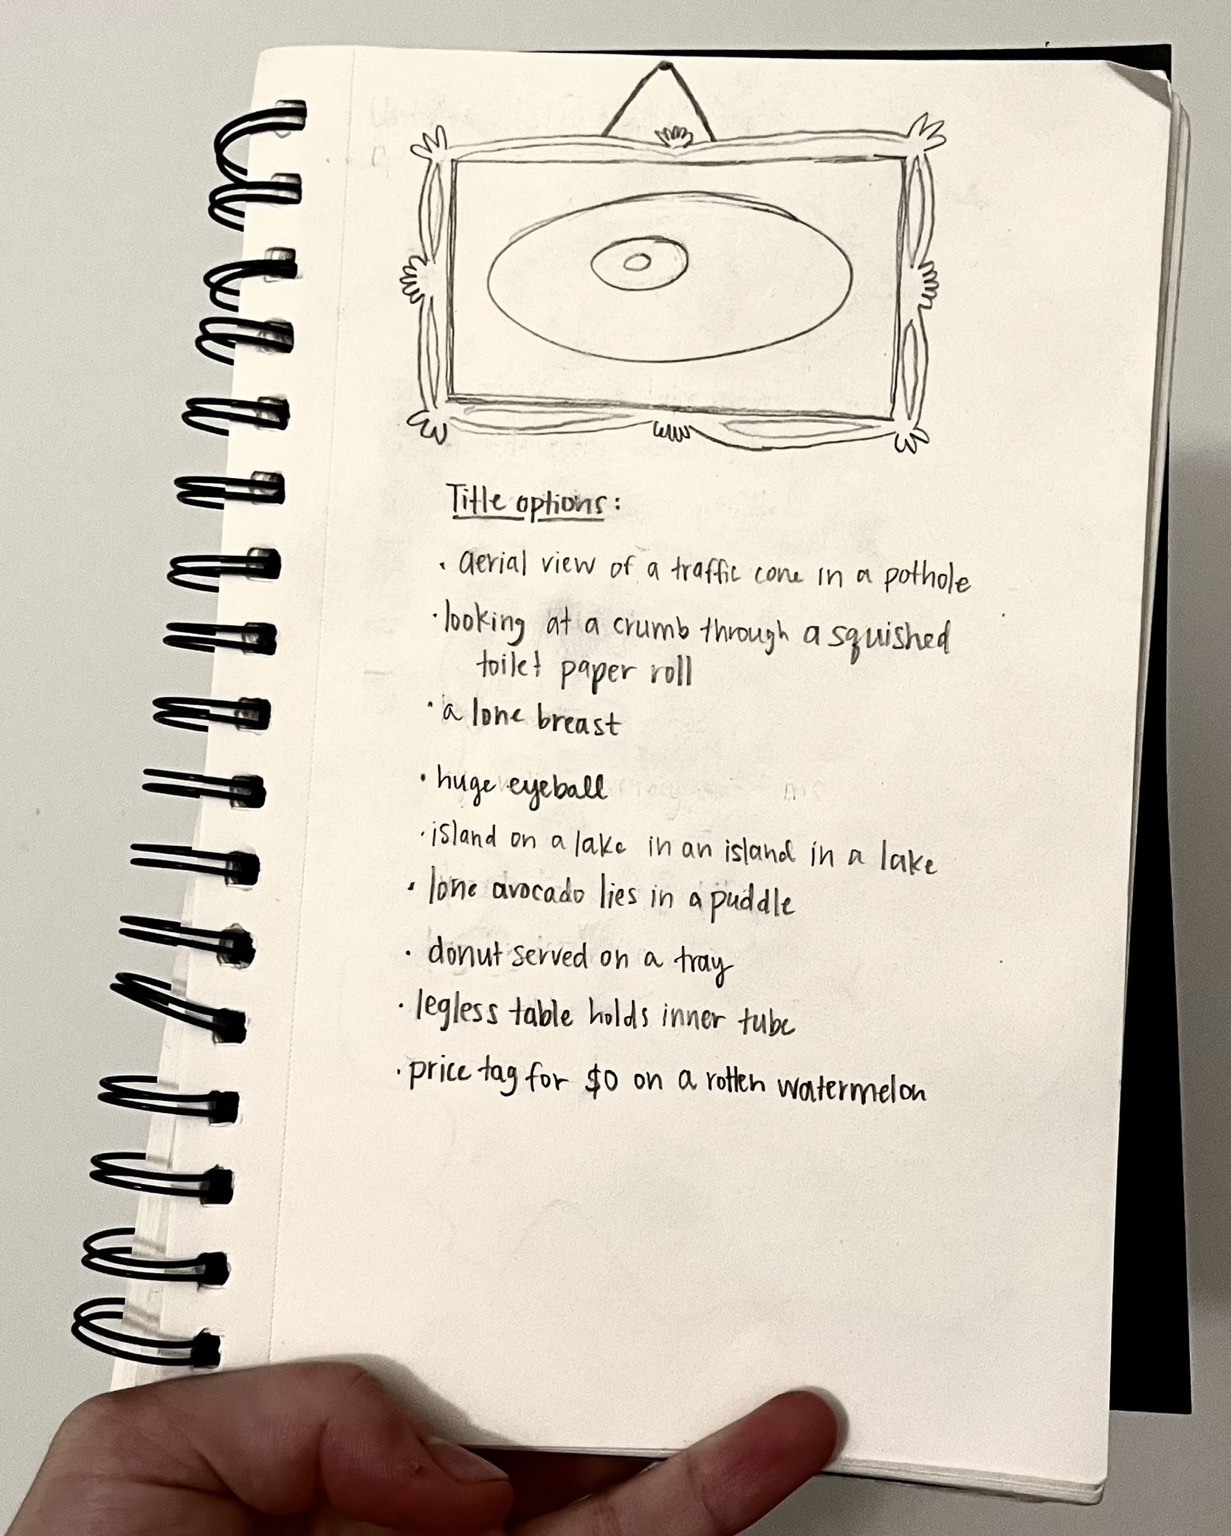 Title options:
· aerial view of a traffic cone in a pothole
· looking at a crumb through a squished
toilet paper roll
· a lone breast
· huge eyeball
· island on a lake in an island in a lake
· lone avocado lies in a puddle
· donut served on a tray
· legless table holds inner tube
· price tag for $0 on a rotten watermelon